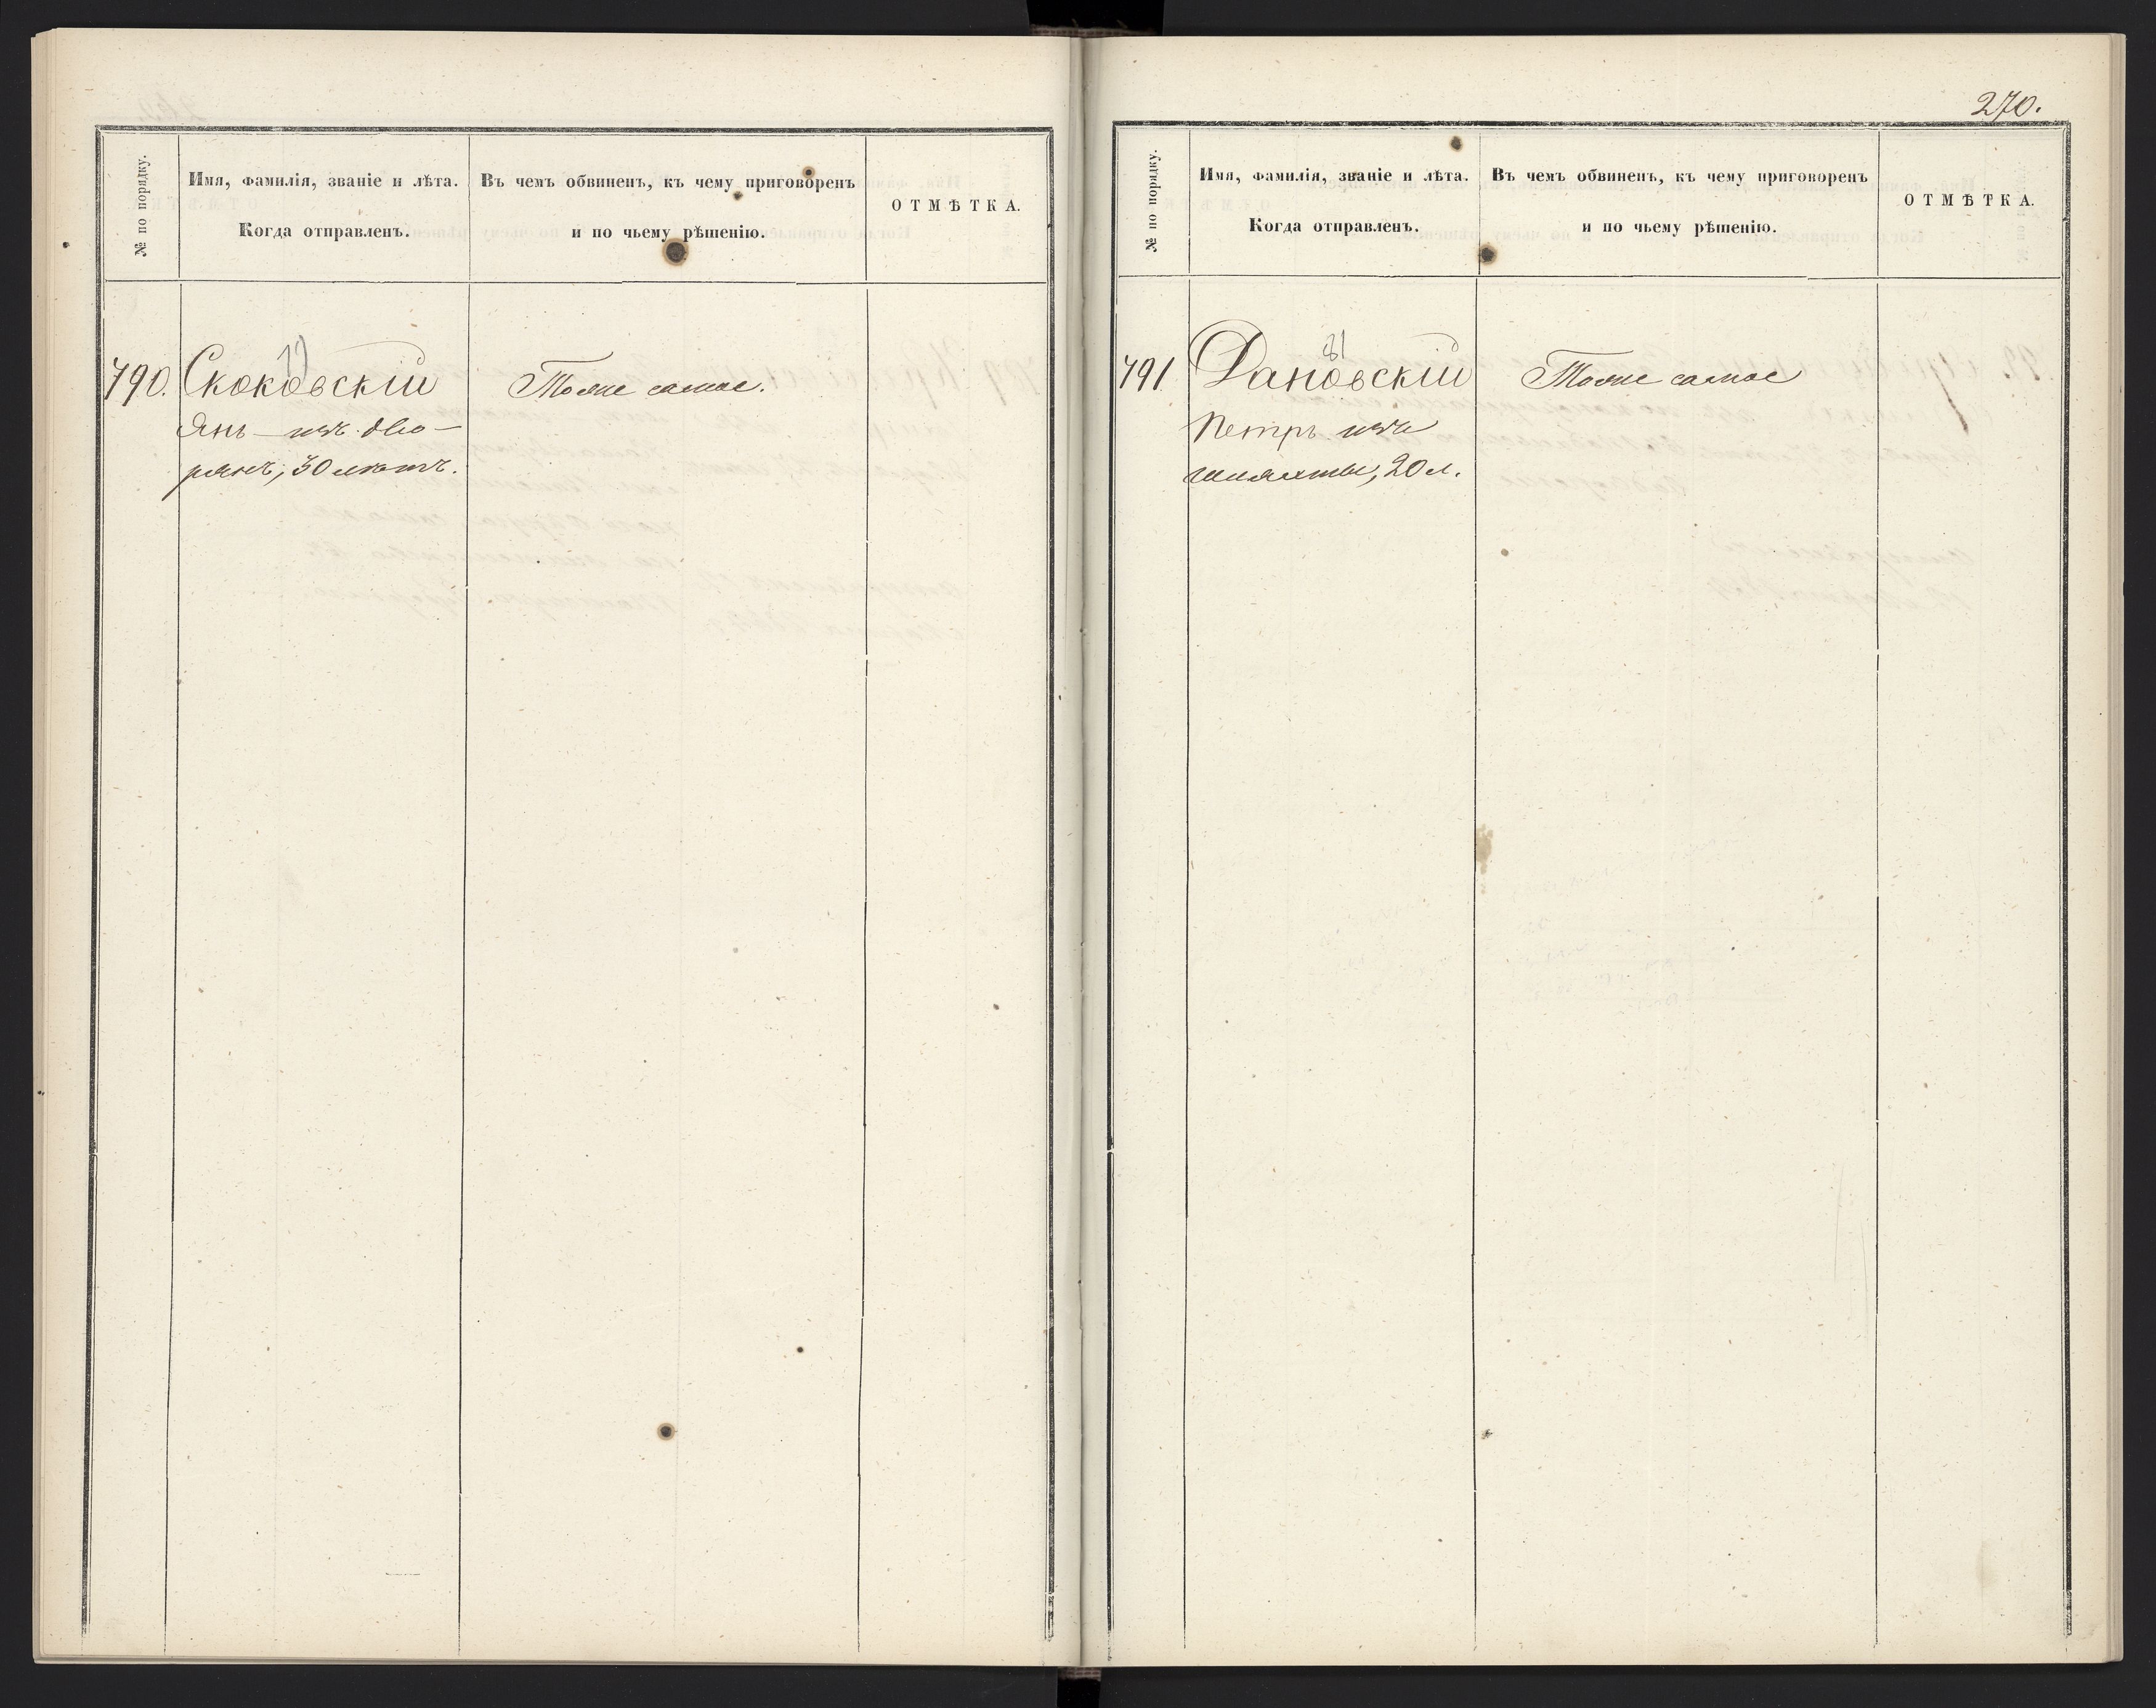 № по порядку.
Имя, фамилія, званіе и лѣта.
Когда отправленъ.
Въ чемъ обвиненъ, къ чему приговоренъ
и по чьему рѣшенію.
ОТМѢТКА.
790.
Скоковскій
Янъ — изъ дво-
рянъ, 30 лѣтъ.
Тоже самое.
270.
№ по порядку.
Имя, фамилія, званіе и лѣта.
Когда отправленъ.
Въ чемъ обвиненъ, къ чему приговоренъ
и по чьему рѣшенію.
ОТМѢТКА.
791
81
Дановскій
Петръ изъ
шляхты, 20 л.
Тоже самое